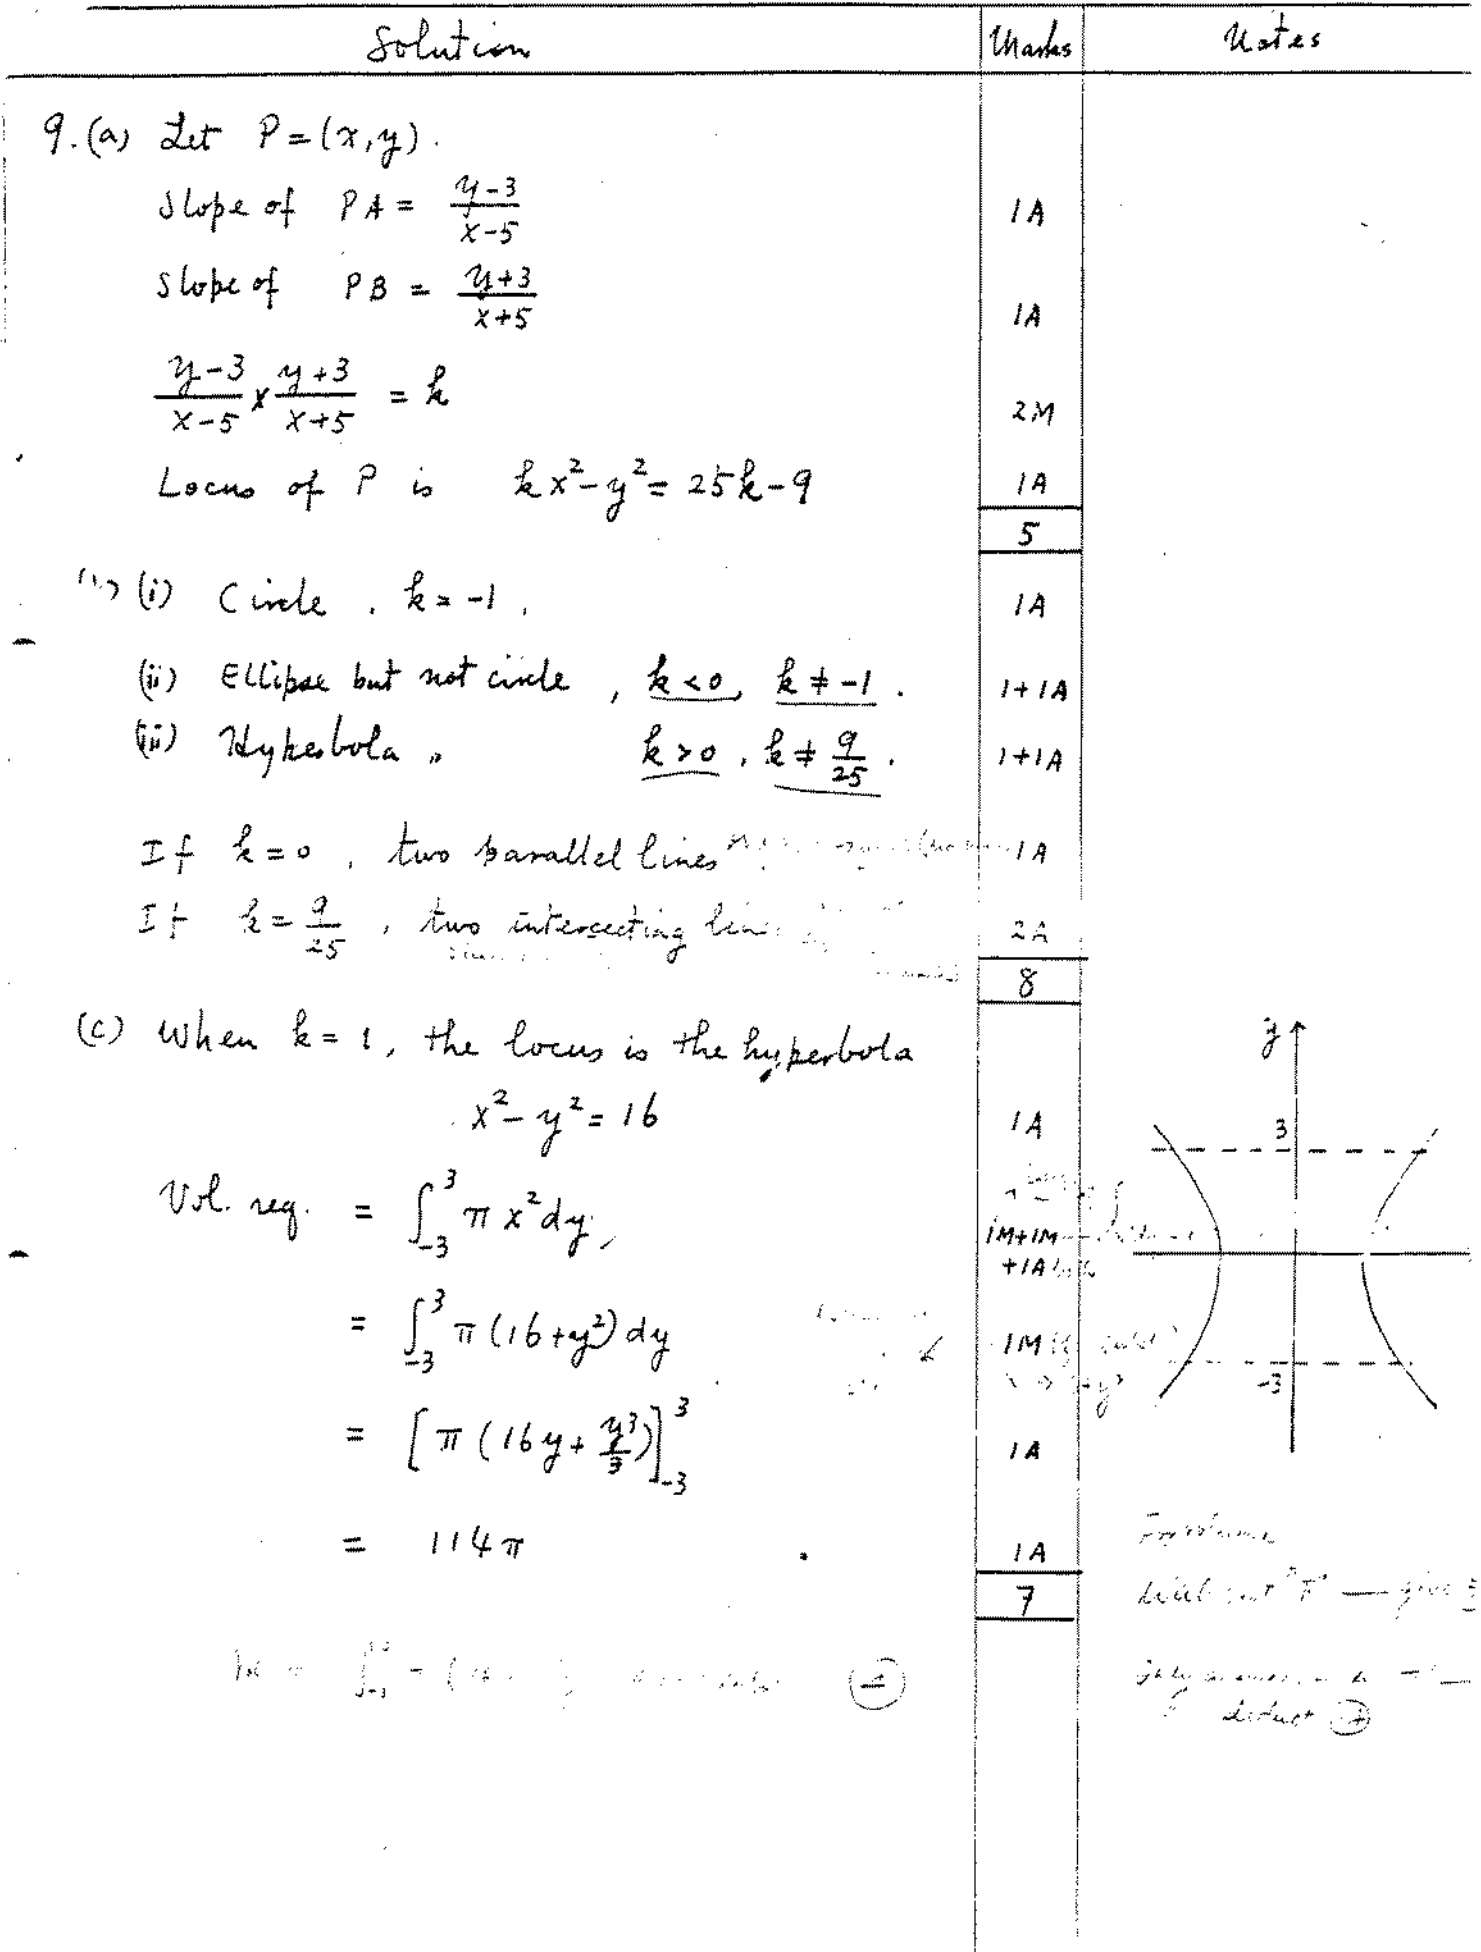 Solution Marks Notes
9. (a) Let P = (x, y).
Slope of PA = \frac{y-3}{x-5} 1A
Slope of PB = \frac{y+3}{x+5} 1A
\frac{y-3}{x-5} × \frac{y+3}{x+5} = k 2M
Locus of P is kx² - y² = 25k - 9 1A
5
(i) Circle, k = -1, 1A
(ii) Ellipse but not circle, k < 0, k ≠ -1. 1+1A
(iii) Hyperbola, k > 0, k ≠ \frac{9}{25}. 1+1A
If k = 0, two parallel lines 1A
If k = \frac{9}{25}, two intersecting 2A
8
(c) When k = 1, the locus is the hyperbola
x² - y² = 16 1A
Vol. req. = ∫_{-3}^{3} π x² dy, 1M+1M
+1A
= ∫_{-3}^{3} π (16 + y²) dy 1M
= [π (16y + \frac{y³}{3})]_{-3}^{3} 1A
= 114π. 1A
7
y
3
-3
For volume
"π" — give
deduct